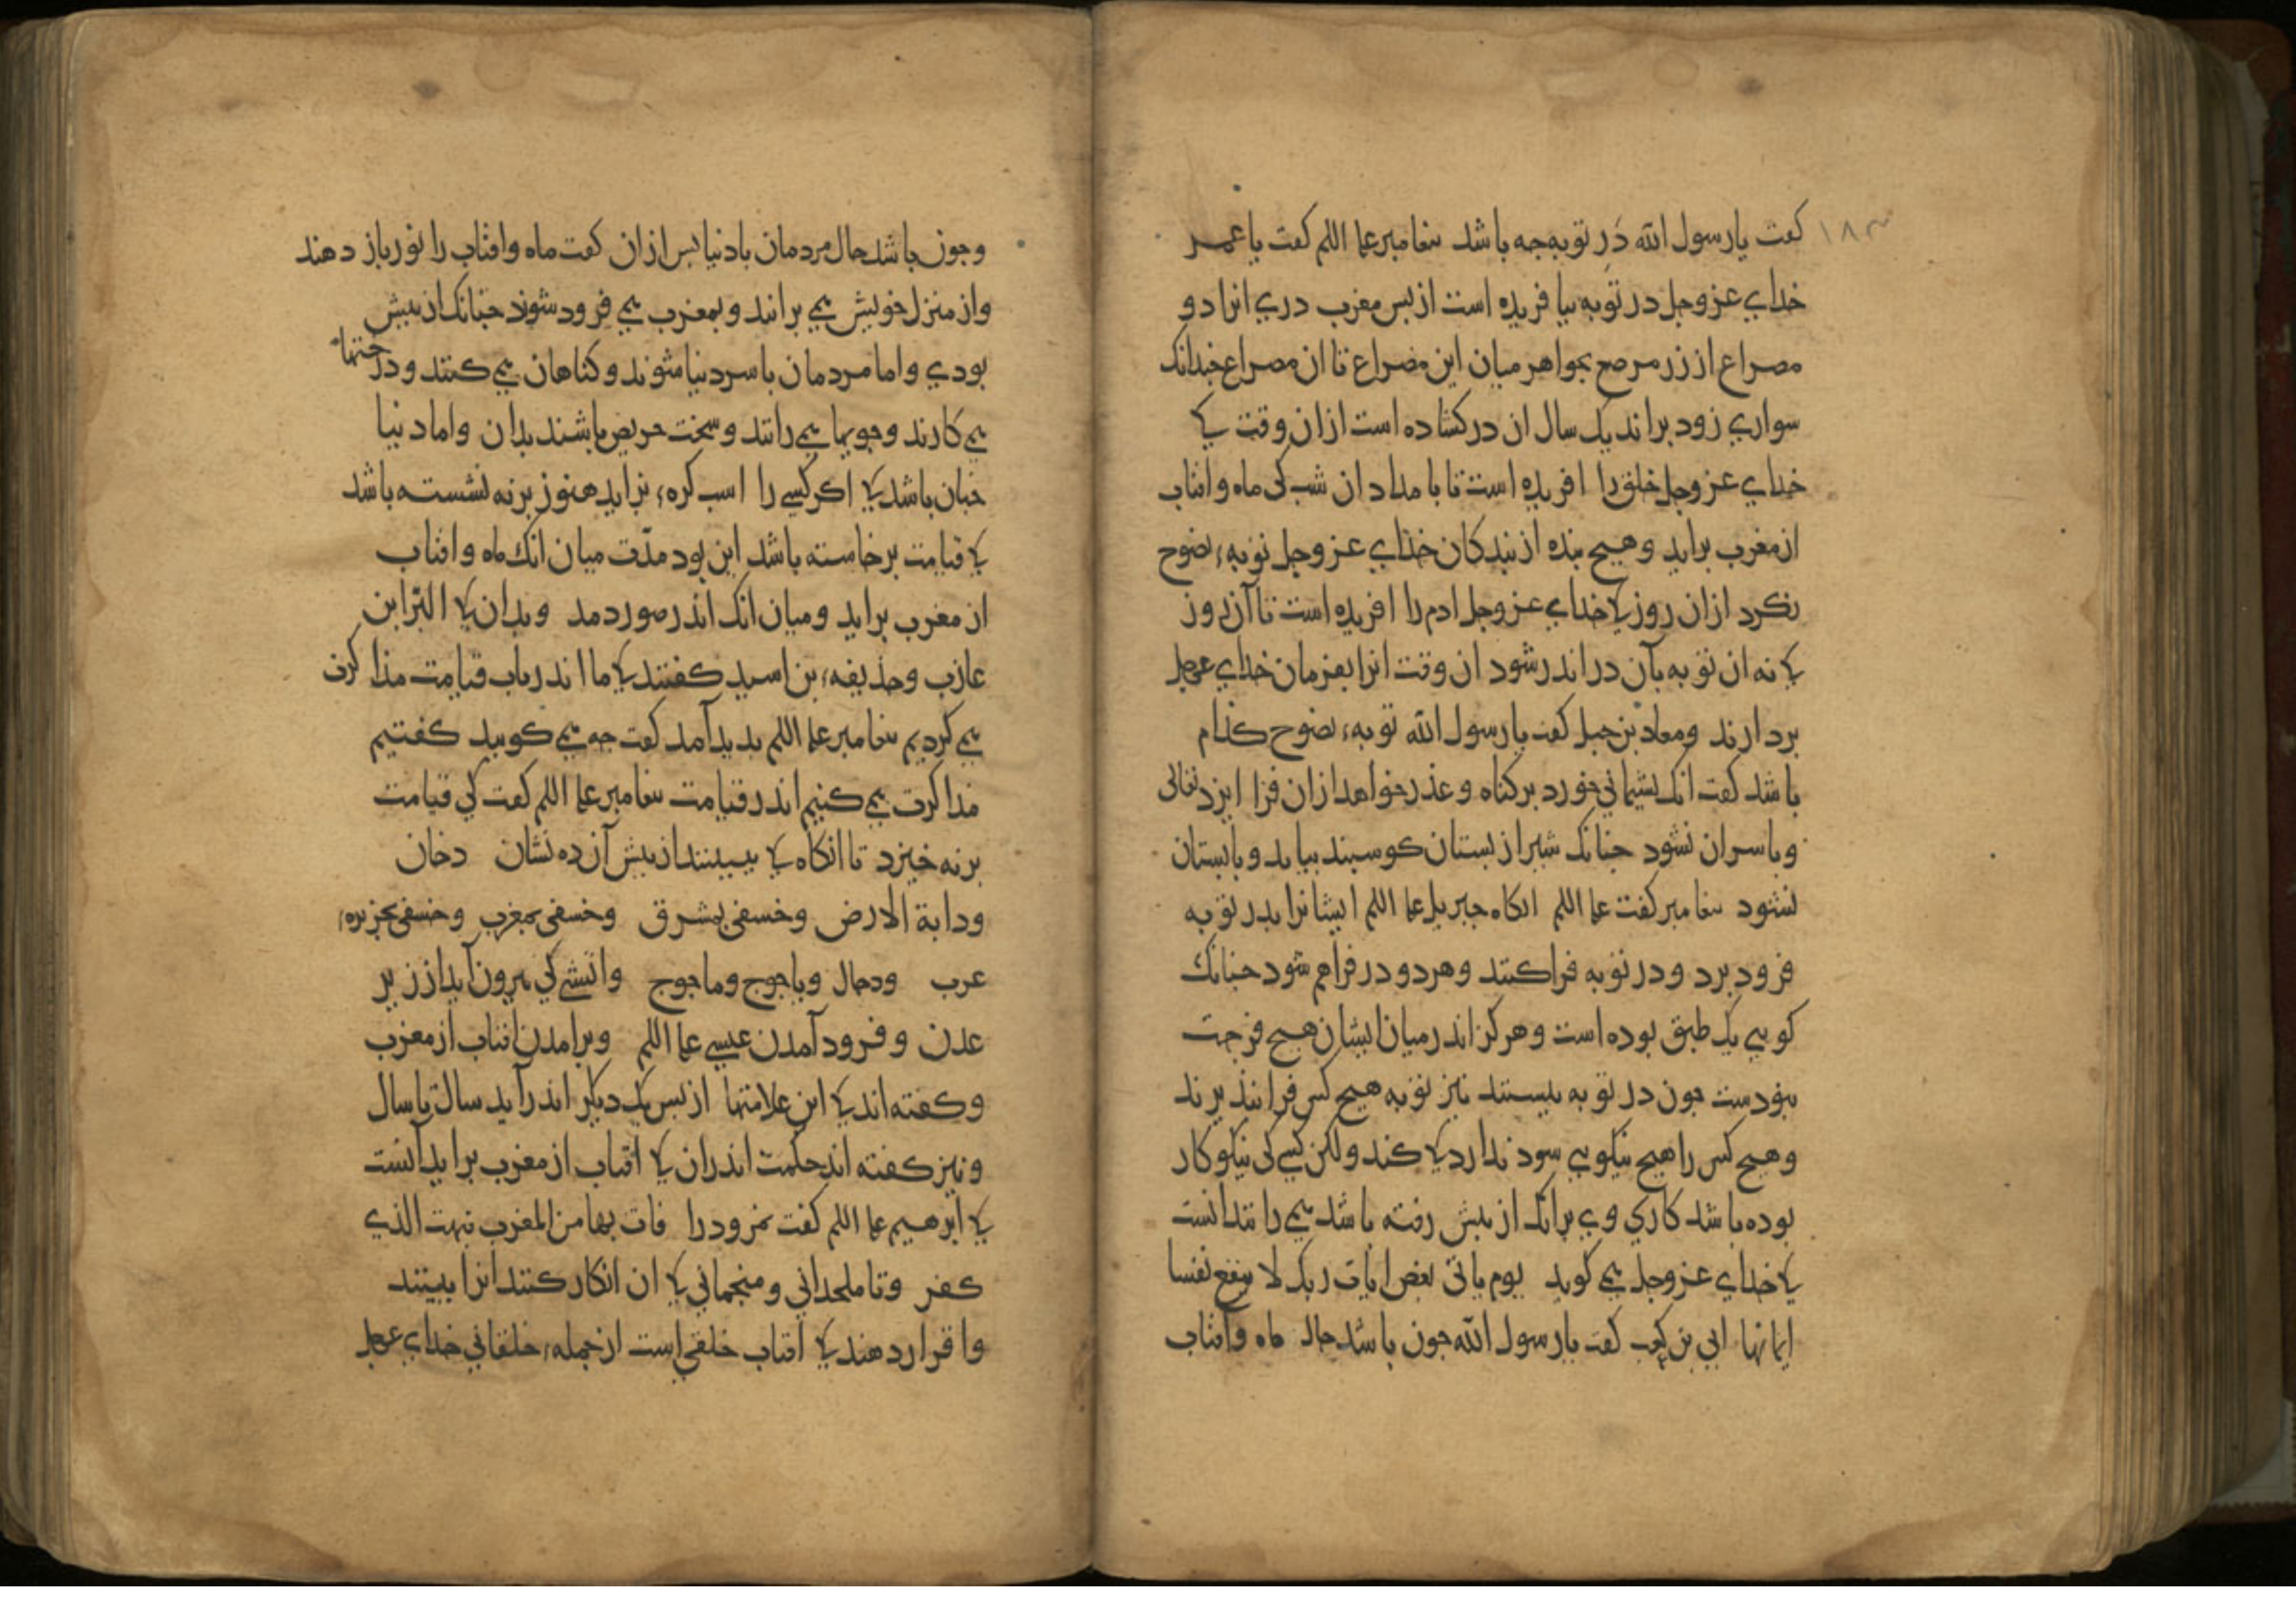 ۱۸۳
کفت یا رسول الله در توبه جه باشد بیغامبر علیه السلم کفت یا عمر
خدای عزوجل در توبه بیافریده است از بس مغرب دری انرا دو
مصراع از زر مرصع بجواهر میان این مصراع تا ان مصراع جندانک
سواری زود براند یک سال ان در کشاده است ازان وقت کا
خدای عزوجل خلق را افریده است تا بامداد ان شب کی ماه و افتاب
از مغرب براید و هیج بنده از بندکان خذای عزوجل توبهء نصوح
نکرد ازان روز کا خدای عزوجل ادم را افریده است تا آن روز
کا نه ان توبه بآن در اندر شود ان وقت انرا بفرمان خدای عزوجل
بردارند و معاذ بن جبل کفت یا رسول الله توبهء نصوح کذام
باشد کفت انک بشیمانی خورد بر کناه و عذر خواهد ازان فرا ایزد تعالی
و با سر ان نشود جنانک شیر از بستان کوسبند بیاید و با بستان
نشود بیغامبر کفت علیه السلم انکاه جبریل علیه السلم ایشانرا بدر توبه
فرود برد و در توبه فرا کنند و هر دو در فراهم شود جنانک
کویی یک طبق بوده است و هرکز اندر میان ایشان هیج فرجت
نبودست جون در توبه ببستند نیز توبه هیج کس فرا نبذیرند
و هیج کس را هیج نیکویی سود ندارد کا کند ولکن کسی کی نیکوکار
بوده باشد کاری وی برانک از بیش رفته باشد می رانند انست
کا خدای عزوجل می کوید یوم یاتی بعض ایات ربک لا ینفع نفسا
ایمانها ابی بن کعب کفت یا رسول الله جون باشد حال ماه و افتاب
وجون باشد حال مردمان با دنیا بس ازان کفت ماه و افتاب را نور باز دهند
و از منزل خویش می برانند و بمغرب می فرود شوند جنانک از بیش
بودی و اما مردمان با سر دنیا شوند و کناهان می کنند و درختها
می کارند و جویها می رانند و سخت حریص باشند بدان و اما دنیا
جنان باشد کا اکر کسی را اسب کرهء بزاید هنوز برنه نشسته باشد
کا قیامت برخاسته باشد این بود مدت میان انک ماه و افتاب
از مغرب براید و میان انک اندر صور دمد و بدان کا البرا بن
عازب و حذیفهء بن اسید کفتند کا ما اندر باب قیامت مذاکرت
می کردیم بیغامبر علیه السلم بدید آمد کفت جه می کویید کفتیم
مذاکرت می کنیم اندر قیامت بیغامبر علیه السلم کفت کی قیامت
برنه خیزد تا انکاه کا ببینند از بیش آن ده نشان دخان
و دابة الارض و خسفی بمشرق و خسفی بمغرب و خسفی بجزیرهء
عرب و دجال و یاجوج و ماجوج و اتشی کی بیرون آید از زیر
عدن و فرود آمدن عیسی علیه السلم و برامدن افتاب از مغرب
و کفته اند کا این علامتها از بس یک دیکر اندر آید سال تا سال
و نیز کفته اند حکمت اندران کا افتاب از مغرب براید آنست
کا ابرهیم علیه السلم کفت نمرود را فات بها من المغرب فبهت الذی
کفر و تا ملحدانی و منجمانی کا ان انکار کنند انرا ببینند
و اقرار دهند کا افتاب خلقی است از جملهء خلقانی خدای عزوجل